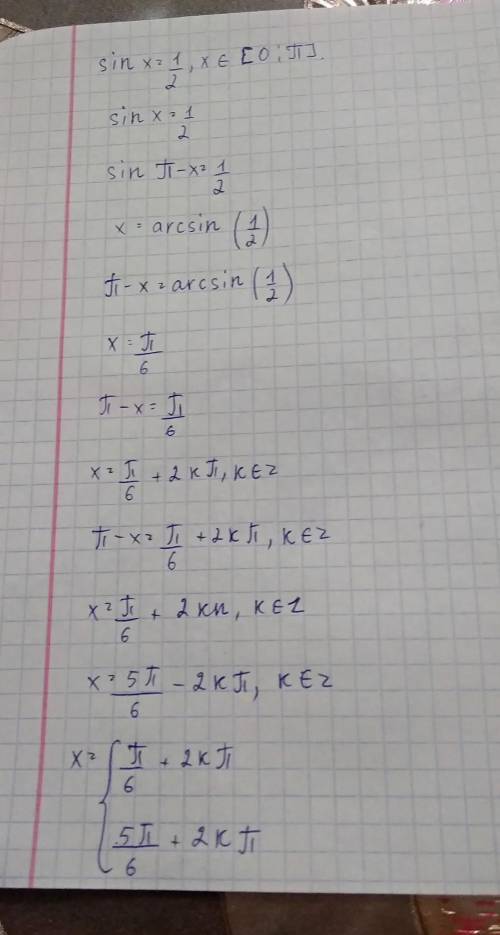 sin x = 1/2, x ∈ [0; π].
sin x = 1/2
sin π - x = 1/2
x = arcsin (1/2)
π - x = arcsin (1/2)
x = π/6
π - x = π/6
x = π/6 + 2кπ, к ∈ z
π - x = π/6 + 2кπ, к ∈ z
x = π/6 + 2кп, к ∈ z
x = 5π/6 - 2кπ, к ∈ z
x = { π/6 + 2кπ
5π/6 + 2кπ